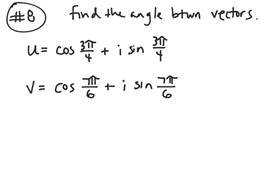 #8 find the angle btwn vectors.
u = cos 3π/4 + i sin 3π/4
v = cos 7π/6 + i sin 7π/6